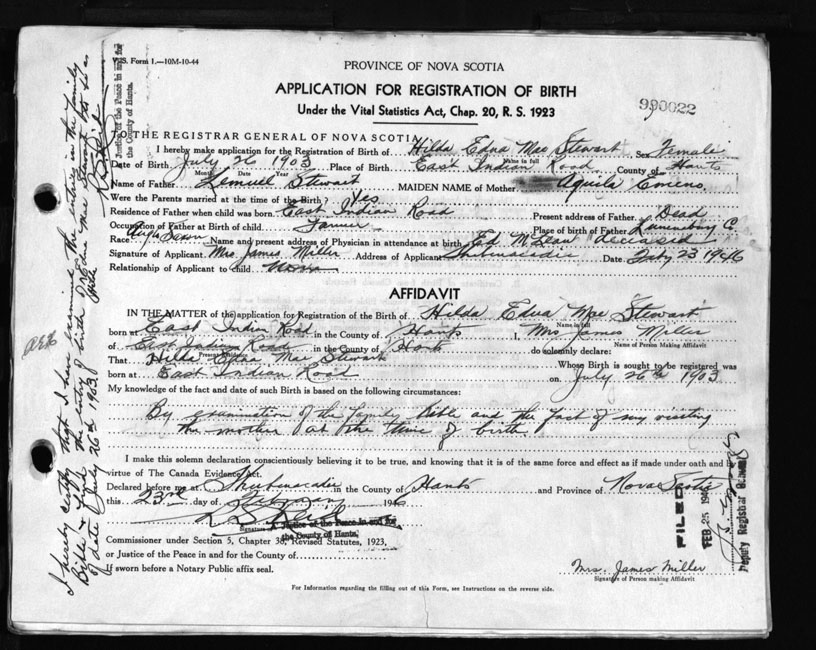 V.S. Form 1.—10M-10-44
PROVINCE OF NOVA SCOTIA
APPLICATION FOR REGISTRATION OF BIRTH
Under the Vital Statistics Act, Chap. 20, R. S. 1923
990022
TO THE REGISTRAR GENERAL OF NOVA SCOTIA
I hereby make application for the Registration of Birth of Hilda Edna Mae Stewart Sex Female
Name in full
Date of Birth July 26 1903 Place of Birth East Indian Road County of Hants
Month Date Year
Name of Father Lemuel Stewart MAIDEN NAME of Mother Aquila
Were the Parents married at the time of the Birth? Yes
Residence of Father when child was born East Indian Road Present address of Father Dead
Occupation of Father at Birth of child Farmer Place of Birth of Father Lunenburg C.
Race Anglo Saxon Name and present address of Physician in attendance at birth Ed McLean deceased
Signature of Applicant Mrs James Miller Address of Applicant Shubenacadie Date Feby 23 1946
Relationship of Applicant to Child
AFFIDAVIT
IN THE MATTER of the application for Registration of the Birth of Hilda Edna Mae Stewart
Name in full
born at East Indian Road in the County of Hants I, Mrs James Miller
Name of Person Making Affidavit
of East Indian Road in the County of Hants do solemnly declare:
Present Residence
That Hilda Edna Mae Stewart Whose Birth is sought to be registered was
born at East Indian Road on July 26th 1903
My knowledge of the fact and date of such Birth is based on the following circumstances:
By examination of the family Bible and the fact of my visiting
the mother at the time of birth.
I make this solemn declaration conscientiously believing it to be true, and knowing that it is of the same force and effect as if made under oath and by
virtue of The Canada Evidence Act.
Declared before me at Shubenacadie in the County of Hants and Province of Nova Scotia
this 23rd day of February 1946
Signature
A Justice of the Peace in and for
the County of Hants.
Commissioner under Section 5, Chapter 38, Revised Statutes, 1923,
or Justice of the Peace in and for the County of
If sworn before a Notary Public affix seal.
Mrs. James Miller
Signature of Person making Affidavit
For Information regarding the filling out of this Form, see Instructions on the reverse side.
I hereby certify that I have examined the entries in the family
Bible & find the entry of birth of Hilda Edna Mae Stewart to be as
of date July 26th 1903
Justice of the Peace in and for
the County of Hants.
FILED
FEB 25 194
Deputy Registrar General